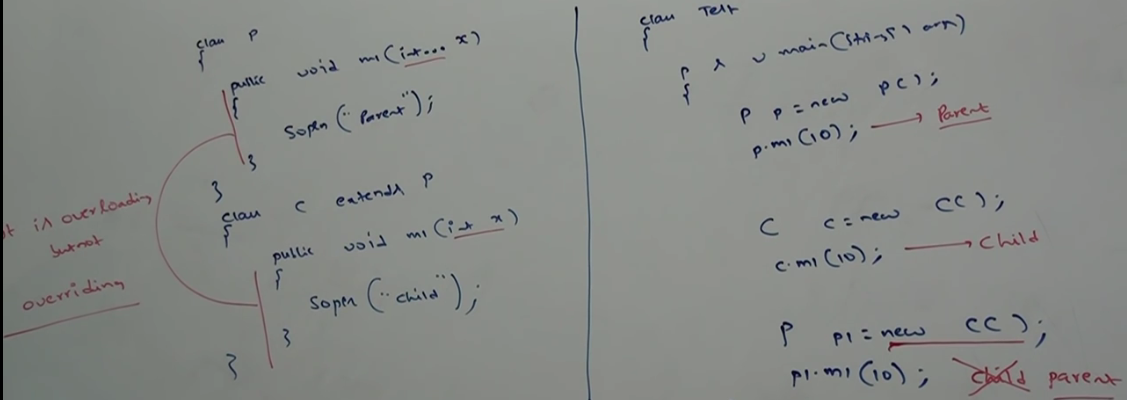 class P
{
public void m1(int... x)
{
Sopln("Parent");
}
}
class C extends P
{
public void m1(int x)
{
Sopln("child");
}
}
it is overloading
but not
overriding
class Test
{
P S V main(String[] args)
{
P p = new P();
p.m1(10); → Parent
C c = new C();
c.m1(10); → Child
P p1 = new C();
p1.m1(10); Child parent